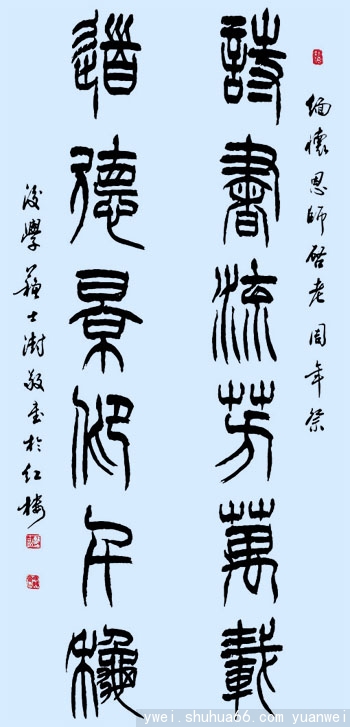 緬懷恩師启老周年祭
詩書流芳萬載
道德景仰千龝
後學蘇士澍敬書於紅樓
ywei.shuhua66.com yuanwei